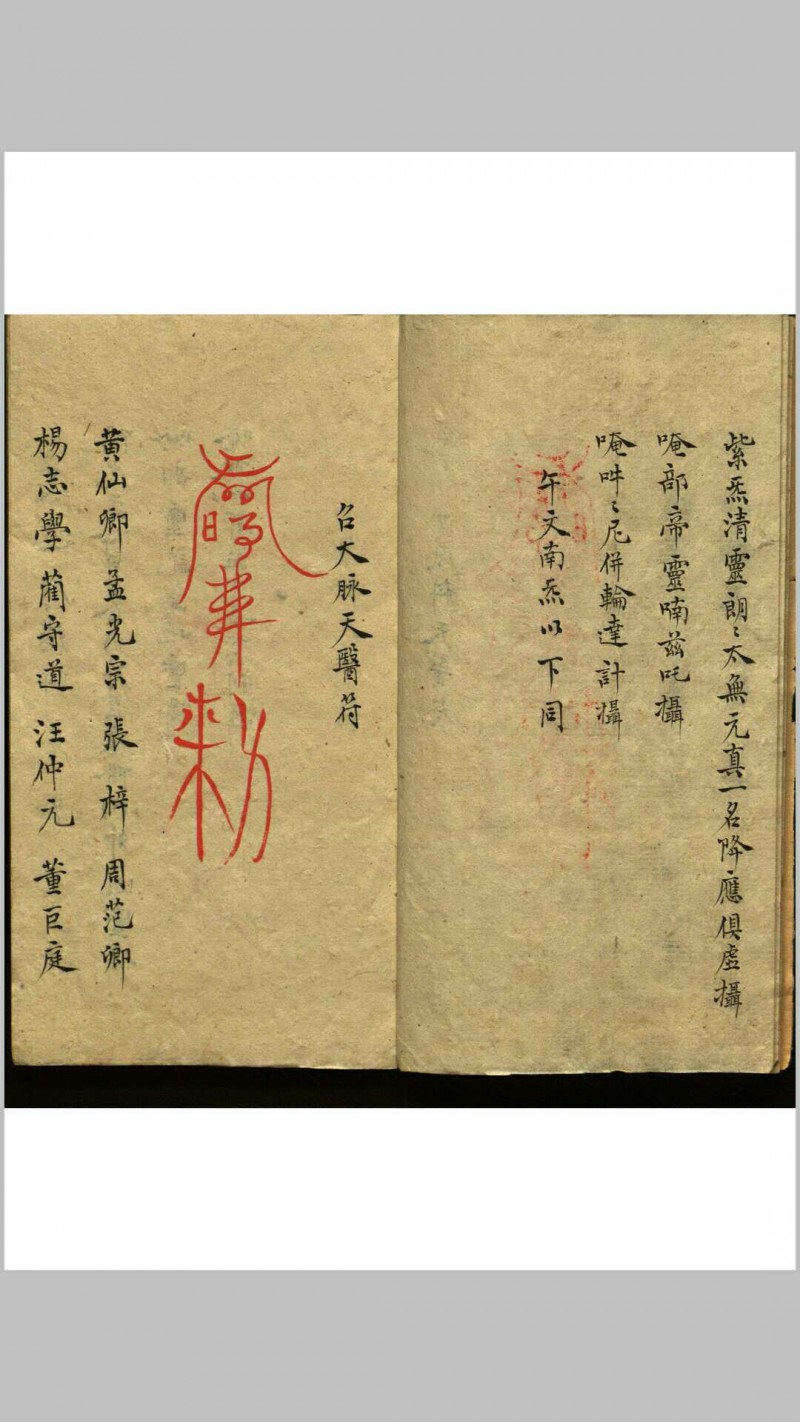 紫炁清靈朗〻太無元真一名降應俱虛攝
唵部帝靈喃茲吒攝
唵吽〻尼併輪達計攝
午文南炁以下同
召大脉天醫符
勑
黄仙卿 孟光宗 張梓 周范卿
楊志學 藺守道 汪仲元 董巨庭